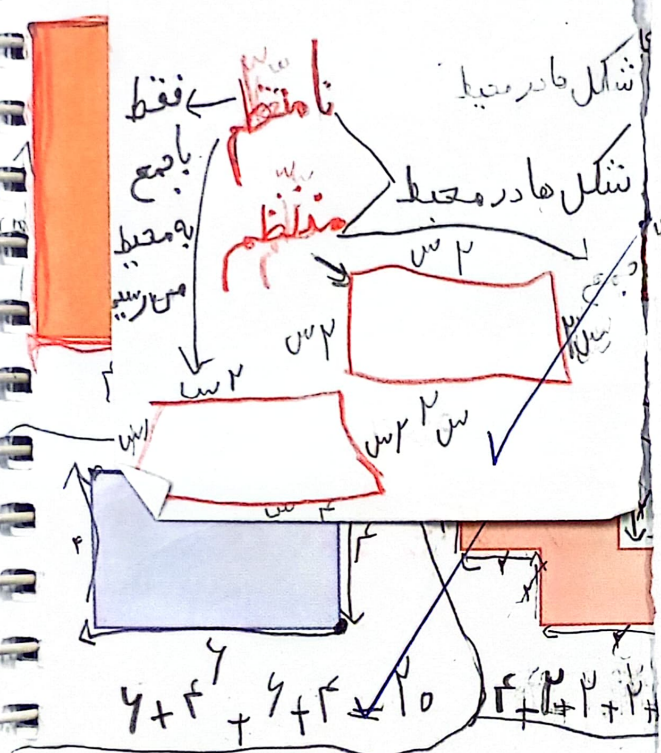 شکل ها در محیط
نا منتظم
فقط
با جمع
به محیط
می رسیم
شکل ها در محیط
منتظم
۲ س
۳ س
۲ س
۲ س
۲ س
۲ س
۴ س
۴
۶
۶+۴+۶+۴=۲۰
۴+۲+۲+۲+